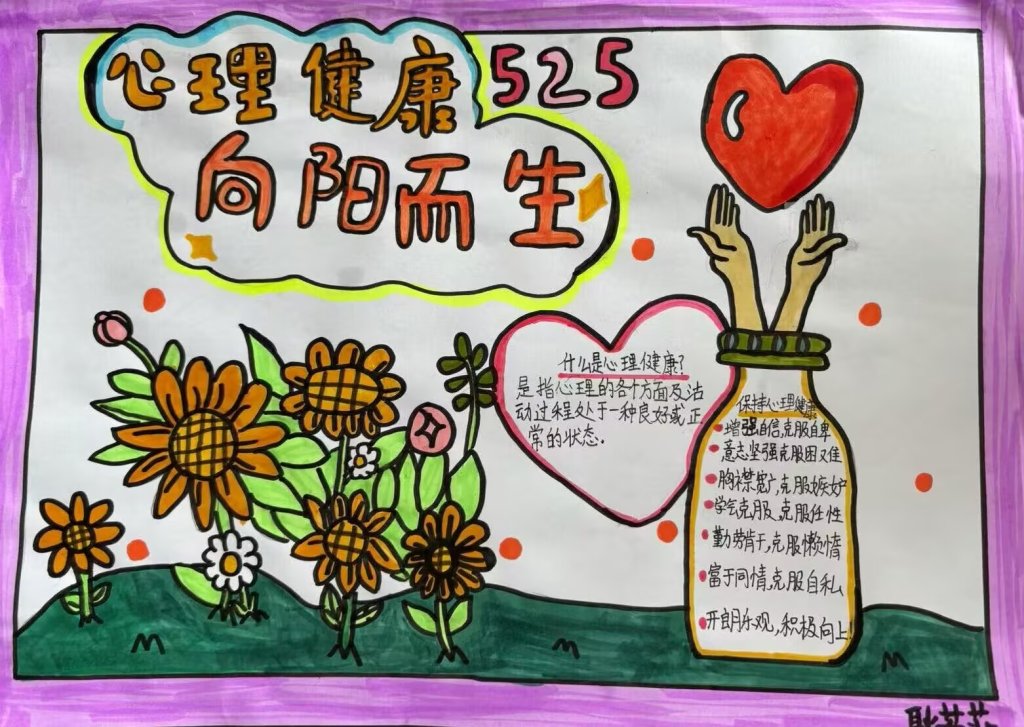 心理健康 525
向阳而生
什么是心理健康?
是指心理的各个方面及活
动过程处于一种良好或正
常的状态.
保持心理健康
增强自信,克服自卑
意志坚强克服困难
胸襟宽广,克服嫉妒
学会克服、克服任性
勤劳肯干,克服懒惰
富于同情,克服自私
开朗乐观,积极向上!